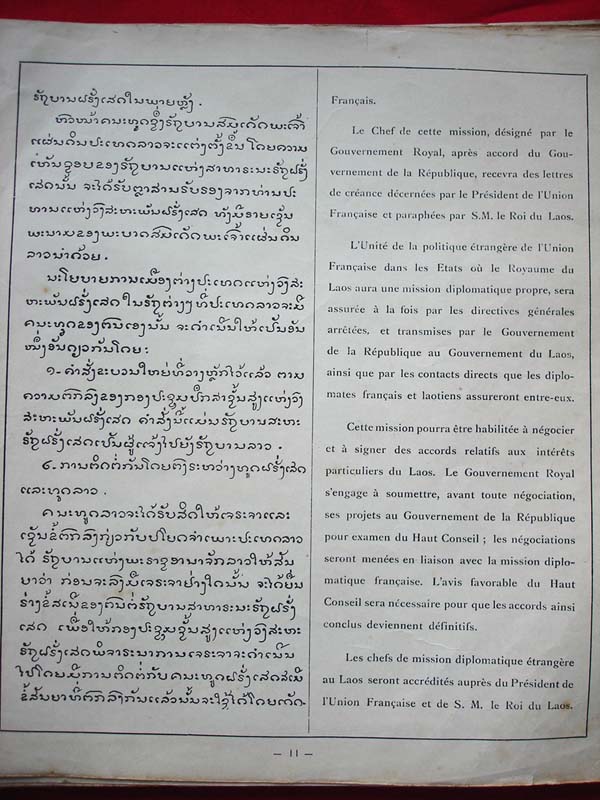 ລັຖບານຝຣັ່ງເສດໃນພາຍຫຼັງ.
ຫົວໜ້າຄນະທູດຊຶ່ງຣັຖບານສົມເດັດພະເຈົ້າ
ແຜ່ນດິນປະເທດລາວຈະແຕ່ງຕັ້ງຂຶ້ນ ໂດຍຄວາມ
ເຫັນຊອບຂອງຣັຖບານແຫ່ງສາທາຣະນະຣັຖຝຣັ່ງ
ເສດນັ້ນ ຈະໄດ້ຮັບຕຼາສານຮັບຮອງຈາກທ່ານປະ
ທານແຫ່ງວົງສະຫະພັນຝຣັ່ງເສດ ທັງມີລາຍເຊັນ
ພະນາມຂອງພະບາດສົມເດັດພະເຈົ້າແຜ່ນດິນ
ລາວນຳດ້ວຍ.
ນະໂຍບາຍການເມືອງຕ່າງປະເທດແຫ່ງວົງສະ
ຫະພັນຝຣັ່ງເສດ ໃນຣັຖຕ່າງໆ ທີ່ປະເທດລາວຈະມີ
ຄນະທູດຂອງຕົນເອງນັ້ນ ຈະດຳເນີນໃຫ້ເປັນອັນ
ໜຶ່ງອັນດຽວກັນໂດຍ:
໑- ຄຳສັ່ງຂະບວນໃຫຍ່ທີ່ວາງຫຼັກໄວ້ແລ້ວ ຕາມ
ຄວາມຕົກລົງຂອງກອງປະຊຸມປຶກສາຊັ້ນສູງແຫ່ງວົງ
ສະຫະພັນຝຣັ່ງເສດ ຄຳສັ່ງນີ້ແມ່ນຣັຖບານສະຫະ
ຣັຖຝຣັ່ງເສດເປັນຜູ້ແຈ້ງໄປຍັງຣັຖບານລາວ.
໒- ການຕິດຕໍ່ກັນໂດຍຕົງຣະຫວ່າງທູດຝຣັ່ງເສດ
ແລະທູດລາວ.
ຄນະທູດລາວຈະໄດ້ຮັບສິດໃຫ້ເຈຣະຈາແລະ
ເຊັນຂໍ້ຕົກລົງກ່ຽວກັບປໂຍດຈຳເພາະປະເທດລາວ
ໄດ້ ຣັຖບານແຫ່ງພະຣາຊອານາຈັກລາວໃຫ້ສັນ
ຍາວ່າ ກ່ອນຈະລົງມືເຈຣະຈາຢ່າງໃດນັ້ນ ຈະໄດ້ຍື່ນ
ຮ່າງຂໍ້ສເນີຂອງຕົນຕໍ່ຣັຖບານສາທາຣະນະຣັຖຝຣັ່ງ
ເສດ ເພື່ອໃຫ້ກອງປະຊຸມຊັ້ນສູງແຫ່ງວົງສະຫະ
ຣັຖຝຣັ່ງເສດພິຈາຣະນາການເຈຣະຈາຈະດຳເນີນ
ໄປໂດຍມີການຕິດຕໍ່ກັບຄນະທູດຝຣັ່ງເສດສເມີ
ຂໍ້ສັນຍາທີ່ຕົກລົງກັນແລ້ວນັ້ນຈະໃຊ້ໄດ້ໂດຍເດັດ-
Français.
Le Chef de cette mission, désigné par le
Gouvernement Royal, après accord du Gou-
vernement de la République, recevra des lettres
de créance décernées par le Président de l'Union
Française et paraphées par S.M. le Roi du Laos.
L'Unité de la politique étrangère de l'Union
Française dans les Etats où le Royaume du
Laos aura une mission diplomatique propre, sera
assurée à la fois par les directives générales
arrêtées, et transmises par le Gouvernement
de la République au Gouvernement du Laos,
ainsi que par les contacts directs que les diplo-
mates français et laotiens assureront entre-eux.
Cette mission pourra être habilitée à négocier
et à signer des accords relatifs aux intérêts
particuliers du Laos. Le Gouvernement Royal
s'engage à soumettre, avant toute négociation,
ses projets au Gouvernement de la République
pour examen du Haut Conseil ; les négociations
seront menées en liaison avec la mission diplo-
matique française. L'avis favorable du Haut
Conseil sera nécessaire pour que les accords ainsi
conclus deviennent définitifs.
Les chefs de mission diplomatique étrangère
au Laos seront accrédités auprès du Président de
l'Union Française et de S. M. le Roi du Laos.
— 11 —